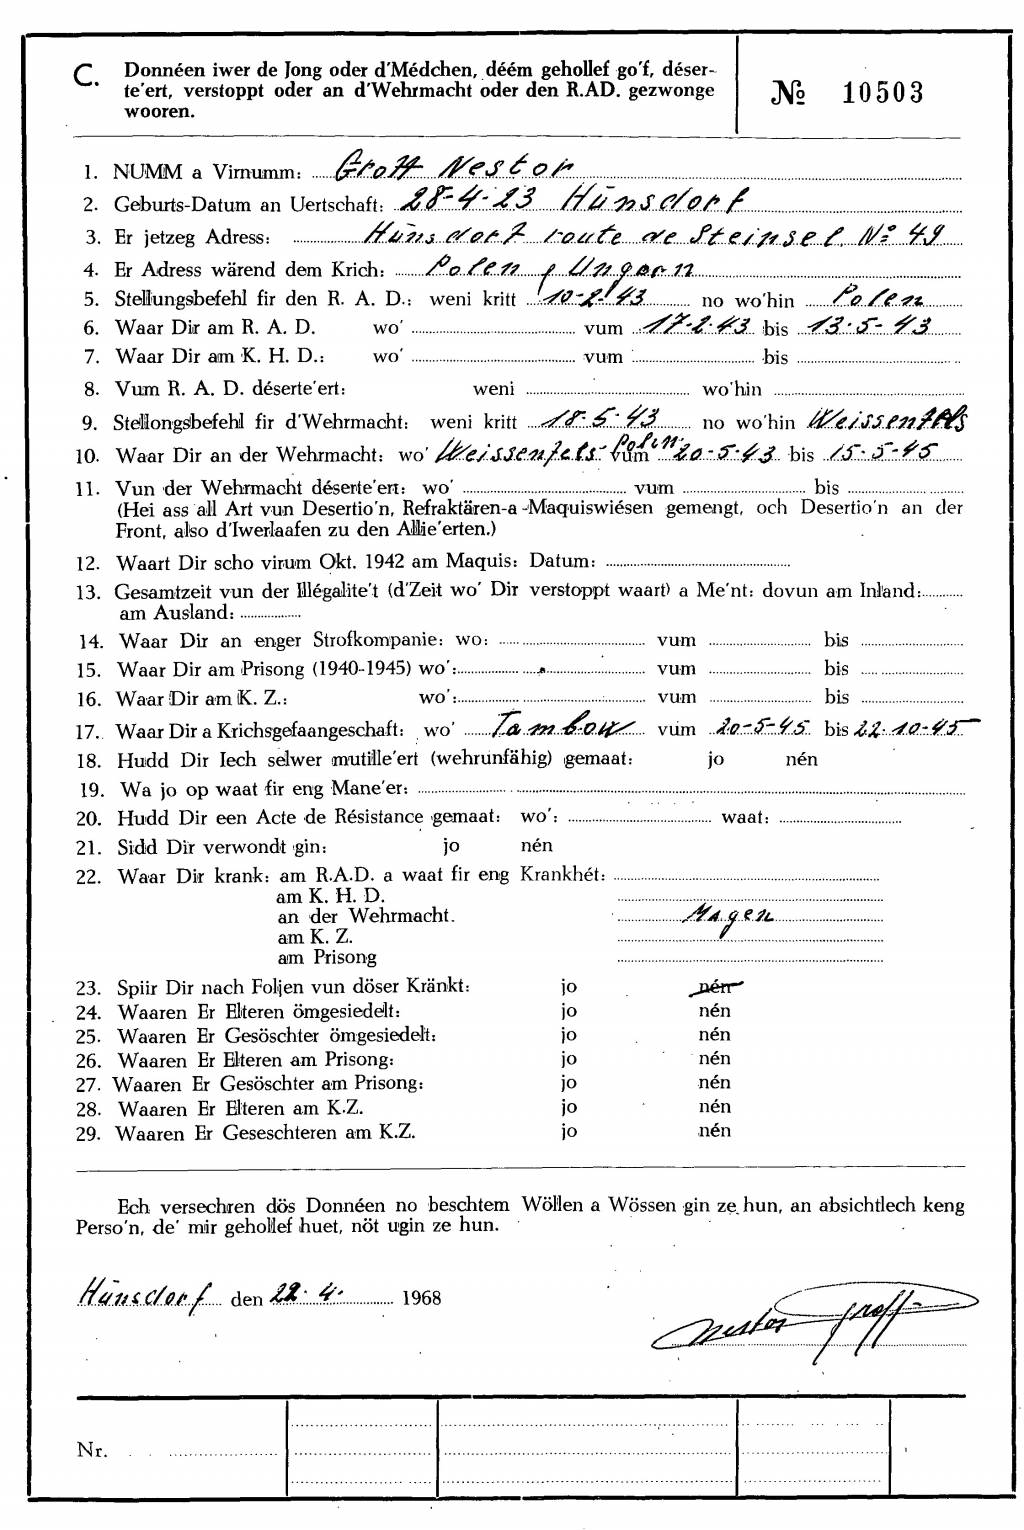 C. Donnéen iwer de Jong oder d'Médchen, déém gehollef go'f, déser-
te'ert, verstoppt oder an d'Wehrmacht oder den R.AD. gezwonge
wooren.
№ 10503
1. NUMM a Virnumm: Groff Nestor
2. Geburts-Datum an Uertschaft: 28-4-23 Hünsdorf
3. Er jetzeg Adress: Hünsdorf route de Steinsel N° 49
4. Er Adress wärend dem Krich: Polen, Ungarn
5. Stellungsbefehl fir den R. A. D.: weni kritt 10-2-43 no wo'hin Polen
6. Waar Dir am R. A. D. wo' vum 17-2-43 bis 13-5-43
7. Waar Dir am K. H. D.: wo' vum bis
8. Vum R. A. D. déserte'ert: weni wo'hin
9. Stellongsbefehl fir d'Wehrmacht: weni kritt 18-5-43 no wo'hin Weissenfels
10. Waar Dir an der Wehrmacht: wo' Weissenfels-Polen vum 20-5-43 bis 15-5-45
11. Vun der Wehrmacht déserte'ert: wo' vum bis
(Hei ass all Art vun Desertio'n, Refraktären-a-Maquiswiésen gemengt, och Desertio'n an der
Front, also d'Iwerlaafen zu den Allie'erten.)
12. Waart Dir scho virum Okt. 1942 am Maquis: Datum:
13. Gesamtzeit vun der Illégalite't (d'Zeit wo' Dir verstoppt waart) a Me'nt: dovun am Inland:
am Ausland:
14. Waar Dir an enger Strofkompanie: wo: vum bis
15. Waar Dir am Prisong (1940-1945) wo': vum bis
16. Waar Dir am K. Z.: wo': vum bis
17. Waar Dir a Krichsgefaangeschaft: wo' Tambow vum 20-5-45 bis 22-10-45
18. Hudd Dir Iech selwer mutille'ert (wehrunfähig) gemaat: jo nén
19. Wa jo op waat fir eng Mane'er:
20. Hudd Dir een Acte de Résistance gemaat: wo': waat:
21. Sidd Dir verwondt gin: jo nén
22. Waar Dir krank: am R.A.D. a waat fir eng Krankhét:
am K. H. D.
an der Wehrmacht. Magen
am K. Z.
am Prisong
23. Spiir Dir nach Foljen vun döser Kränkt: jo nén
24. Waaren Er Elteren ömgesiedelt: jo nén
25. Waaren Er Gesöschter ömgesiedelt: jo nén
26. Waaren Er Elteren am Prisong: jo nén
27. Waaren Er Gesöschter am Prisong: jo nén
28. Waaren Er Elteren am K.Z. jo nén
29. Waaren Er Geseschteren am K.Z. jo nén
Ech versechren dös Donnéen no beschtem Wöllen a Wössen gin ze hun, an absichtlech keng
Perso'n, de' mir gehollef huet, nöt ugin ze hun.
Hünsdorf den 22. 4. 1968
Nestor Groff
Nr.